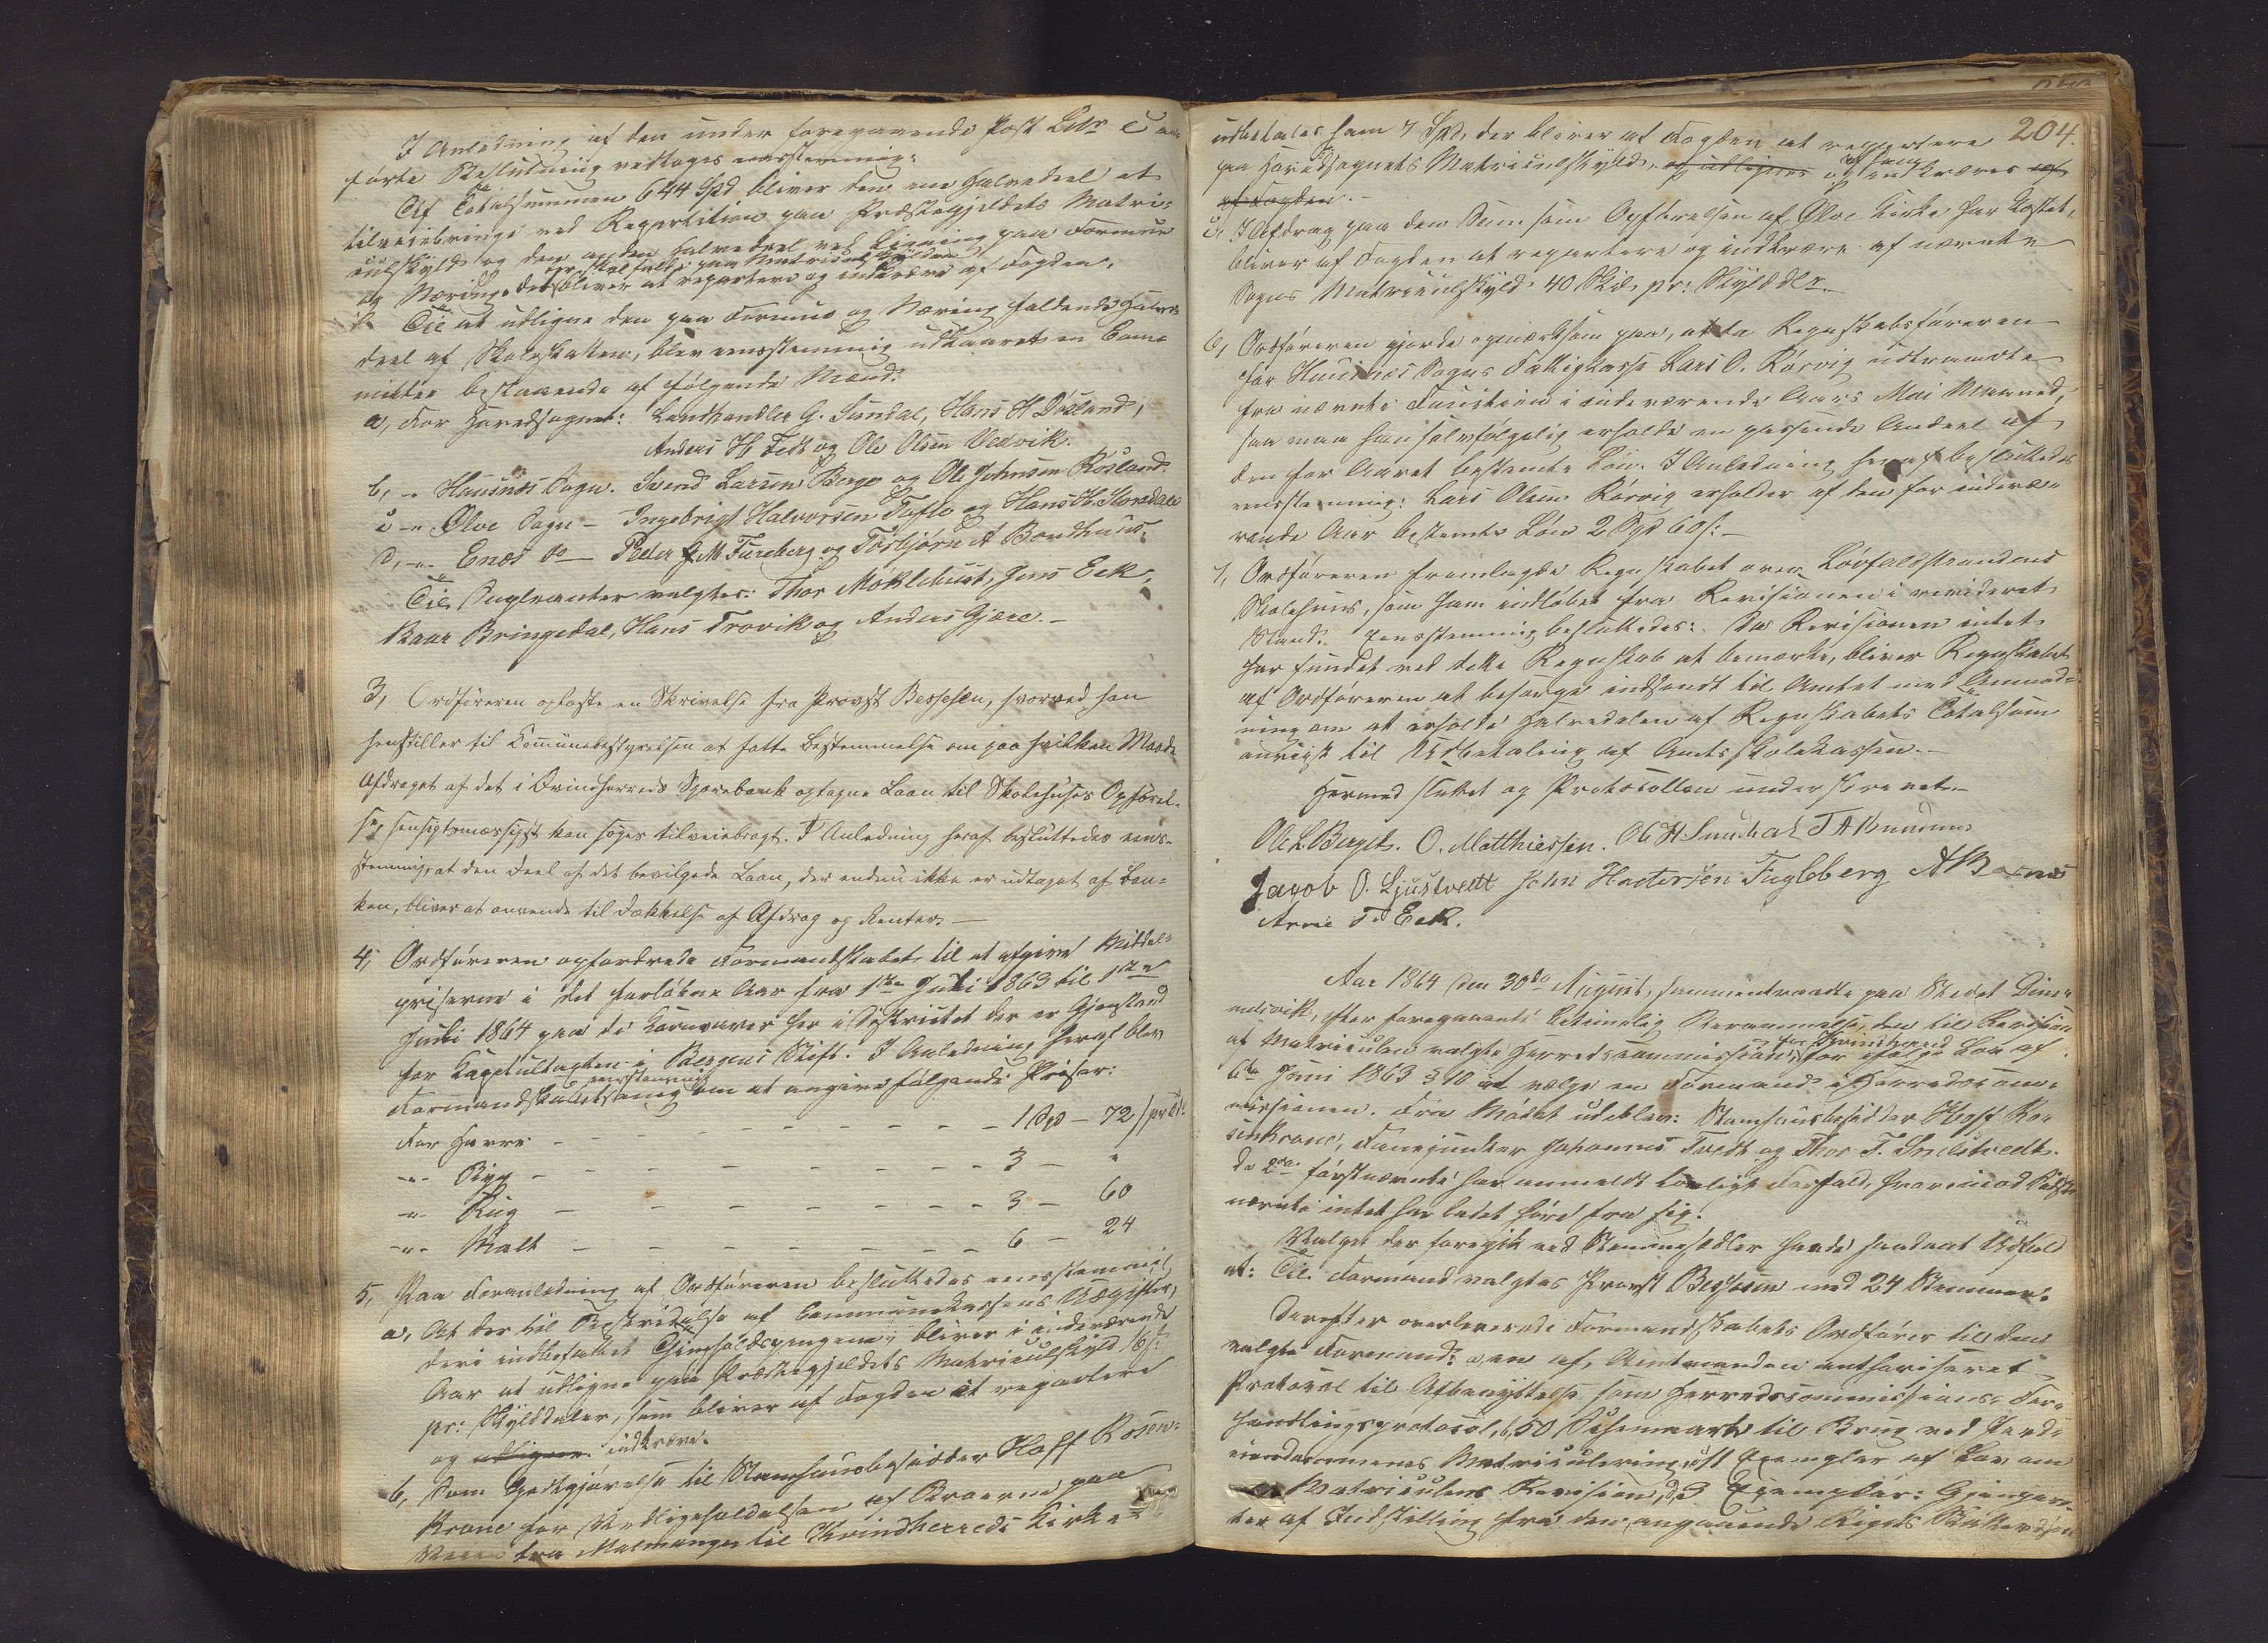 I Anledning af den under foregaaende Post Litr C an-
førte Beslutning vedtages eensstemmig:
Af Totalsummen 644 Spd bliver den ene Halvedeel at
tilveiebringe ved Repartition paa Præstegjeldets Matri-
culskyld og den anden Halvedeel ved Ligning paa Formue
og Næring. Det der skal falde paa Matriculskylden bliver at repartere og indkræve af Fogden.
Til at udligne den paa Formue og Næring faldende Halve-
deel af Skoleskatten, blev eensstemmig udkaaret en Com-
mittee bestaaende af følgende Mænd:
a, For Hovedsognet: Landhandler G. Sundal, Hans H Døsland,
Anders H. Fedt og Ole Olsen Vedvik.
b, -"- Huusnæs Sogn. Svend Larsen Berge og Ole Johnsen Røsland.
c -"- Ølve Sogn - Ingebrigt Halvorsen Tufte og Hans H. Hovdale
d, -"- Enæs do - Peder G. M. Fureberg og Torbjørn A Bondhuus.
Til Suppleanter valgtes: Thor Møklebust, Jens Eek,
Baar Bringedal, Hans Trovik og Anders Gjære. -
3, Ordføreren oplæste en Skrivelse fra Provst Bessesen, hvorved han
henstiller til Kommunebestyrelsen at fatte Bestemmelse om paa hvilken Maade
Afdraget af det i Qvindherreds Sparebank optagne Laan til Skolehuses Opførel-
se, hensigtsmæssigst kan søges tilveiebragt. I Anledning heraf besluttedes eens-
stemmig, at den Deel af det bevilgede Laan, der endnu ikke er udtaget af Ban-
ken, bliver at anvende til Dækkelse af Afdrag og Renter. -
4, Ordføreren opfordrede Formandskabet til at afgive Middel-
priserne i det forløbne Aar fra 1ste Juli 1863 til 1ste
Juli 1864 paa de Kornvarer her i Districtet der er Gjenstand
for Kapitultaxten i Bergens Stift. I Anledning heraf blev
Formandskabet eensstemmig enig om at angive følgende Priser:
For Havre - - - - - - - 1 Spd - 72 s pr Td:
-"- Byg - - - - - - - 3 - "
-"- Rug - - - - - - - 3 - 60
-"- Malt - - - - - - - 6 - 24
5, Paa Foranledning af Ordføreren besluttedes eensstemmig
a, At der til Bestridelse af Communekassens Udgifter,
deri indbefattet Thinholdspengene, bliver i indeværende
Aar at udligne paa Præstegjeldets Matriculskyld 16 s:
pr: Skylddaler, som bliver af Fogden at repartere
og udligne indkræve.
b, Som Godtgjørelse til Stamhuusbesidder Hoff Rosen-
krone for Vedligeholdelsen af Broerne paa
Veien fra Malmanger til Kvindherreds Kirke
204.
udbetales ham 7 Spd, der bliver af Fogden at repartere
paa Hovedsognets Matriculskyld, og udlignes og indkræves af
af Fogden. -
c, I Afdrag paa den Sum som Opførelsen af Ølve Kirke har kostet,
bliver af Fogden at repartere og indkræve af nævnte
Sogns Matriculskyld 40 Skil. pr: Skylddlr.
6, Ordføreren gjorde opmærksom paa, at da Regnskabsføreren
for Huusnæs Sogns Fattigkasse Lars O. Rørvig udtraadte
fra nævnte Function i indeværende Aars Mai Maaned,
saa maa han selvfølgelig erholde en passende Andeel af
den for Aaret bestemte Løn. I Anledning heraf besluttedes
eensstemmig: Lars Olsen Rørvig erholder af den for indevæ-
rende Aar bestemte Løn 2 Spd 60 s: -
7, Ordføreren fremlagde Regnskabet over Løvfaldstrandens
Skolehuus, som ham indløbet fra Revisionen i revideret
Stand. Eensstemmig besluttedes: Da Revisionen intet
har fundet ved dette Regnskab at bemærke, bliver Regnskabet
af Ordføreren at besørge indsendt til Amtet med Anmod-
ning om at erholde Halvedelen af Regnskabets Totalsum
anviist til Udbetaling af Amtsskolekassen. -
Hermed sluttet og Protocollen underskrevet. -
Ole L. Berget. O. Matthiessen. Ole H Sundal T A Bruuduns
Jacob O. Ljustvedt John Hactorsen Fugleberg A Bernes
Arne T Eek.
Aar 1864 den 30de August, sammentraadte paa Stedet Dim-
melsvik, efter foregaaende betimelig Berammelse, den til Revision
af Matriculen valgte Herredscommission for Kvindherred, for ifølge Lov af
6te Juni 1863 § 10 at vælge en Formand i Herredscom-
missionen. Fra Mødet udeblev: Stamhuusbesidder Hoff Ro-
senkrone, Fanejunker Johannes Tvedt og Thor T. Snilstvedt.
De 2de førstnævnte har anmeldt lovligt Forfald, hvorimod Sidst-
nævnte intet har ladet høre fra sig.
Valget der foregik ved Stemmesedler havde saadant Udfald
at: Til Formand valgtes Provst Bessesen med 24 Stemmer.
Derefter overleverede Formandskabets Ordfører til den
valgte Formand: a, en af Amtmanden authoriseret
Protocol til Afbenyttelse som Herredscommissions-For-
handlingsprotocol, b, 50 Schemaer til Brug ved Jord-
eiendommenes Matriculering, c, 11 Exemplar af Lov om
Matriculens Revision, d, 3 Exemplar: Gjenpar-
ter af Indstilling fra den angaaende Rigets Skatvæsen